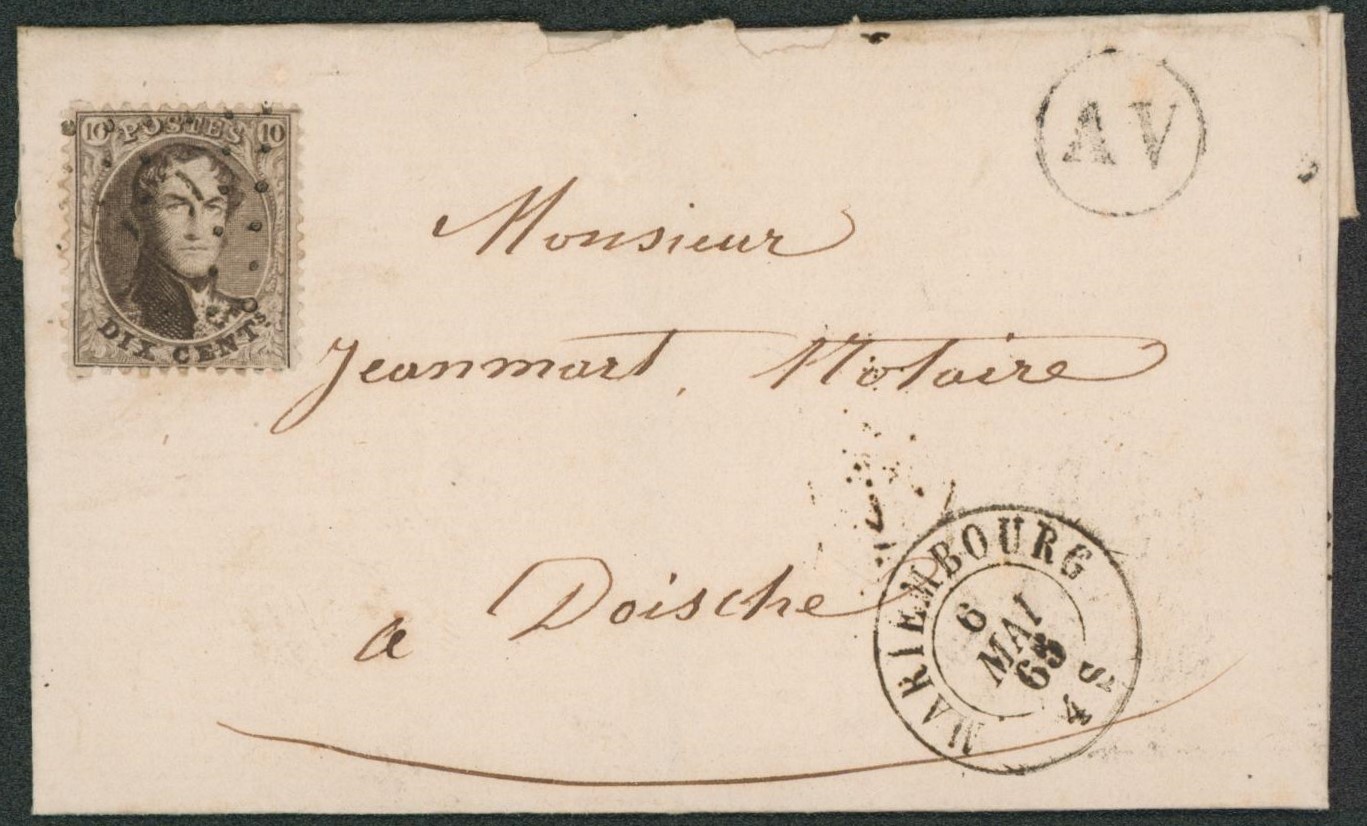 10 POSTES 10
DIX CENTS.
AV
Monsieur
Jeanmart, Notaire
a Doische
MARIEMBOURG
6
MAI
65
4 S